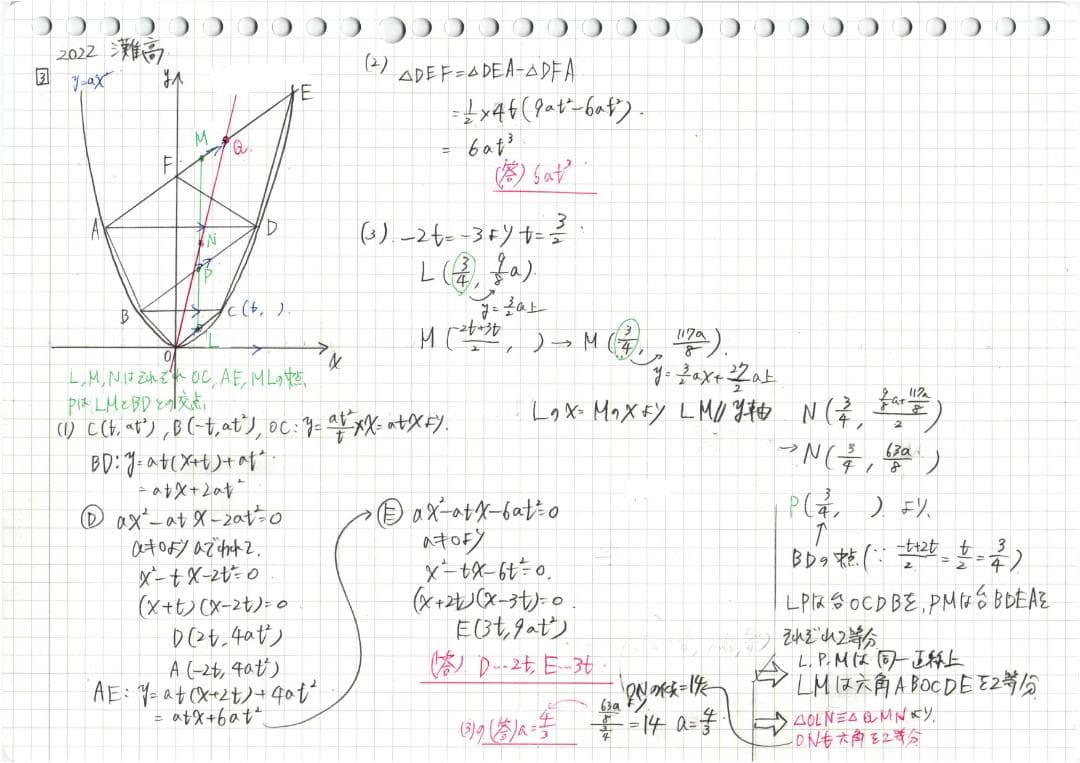 2022 灘高
3
y=ax²
y
E
M
Q
F
A
D
N
P
B
C(t, ).
O
L
x
L,M,NはそれぞれOC,AE,MLの中点
PはLMとBDとの交点
(1) C(t,at²),B(-t,at²),OC:y=at²/t×x=atxより.
BD:y=at(x+t)+at²
=atx+2at²
Ⓓ ax²-atx-2at²=0
a≠0よりaでわって.
x²-tx-2t²=0
(x+t)(x-2t)=0
D(2t,4at²)
A(-2t,4at²)
AE:y=at(x+2t)+4at²
=atx+6at²
Ⓔ ax²-atx-6at²=0
a≠0より
x²-tx-6t²=0.
(x+2t)(x-3t)=0
E(3t,9at²)
(答) D…2t,E…3t
(2)
△DEF=△DEA-△DFA
=1/2×4t(9at²-6at²).
= 6at³
(答) 6at³
(3) -2t=-3よりt=3/2
L(3/4, 9/8a).
y=3/2a上
M((2t+3t)/2, )→M(3/4, 117a/8).
y=3/2ax+27/2a上
Lのx=Mのxより LM//y軸
N(3/4, (9/8a+117a/8)/2)
→N(3/4, 63a/8)
P(3/4, ) より.
BDの中点(∵ (-t+2t)/2=t/2=3/4)
LPは台OCDBを,PMは台BDEAを
それぞれ2等分
⇒ L,P,Mは同一直線上
LMは六角ABOCDEを2等分
⇒ △OLN≡△QMNより.
ONも六角を2等分
ONの傾=14
より
(63a/8)/(3/4)=14 a=4/3
(3)の(答)a=4/3